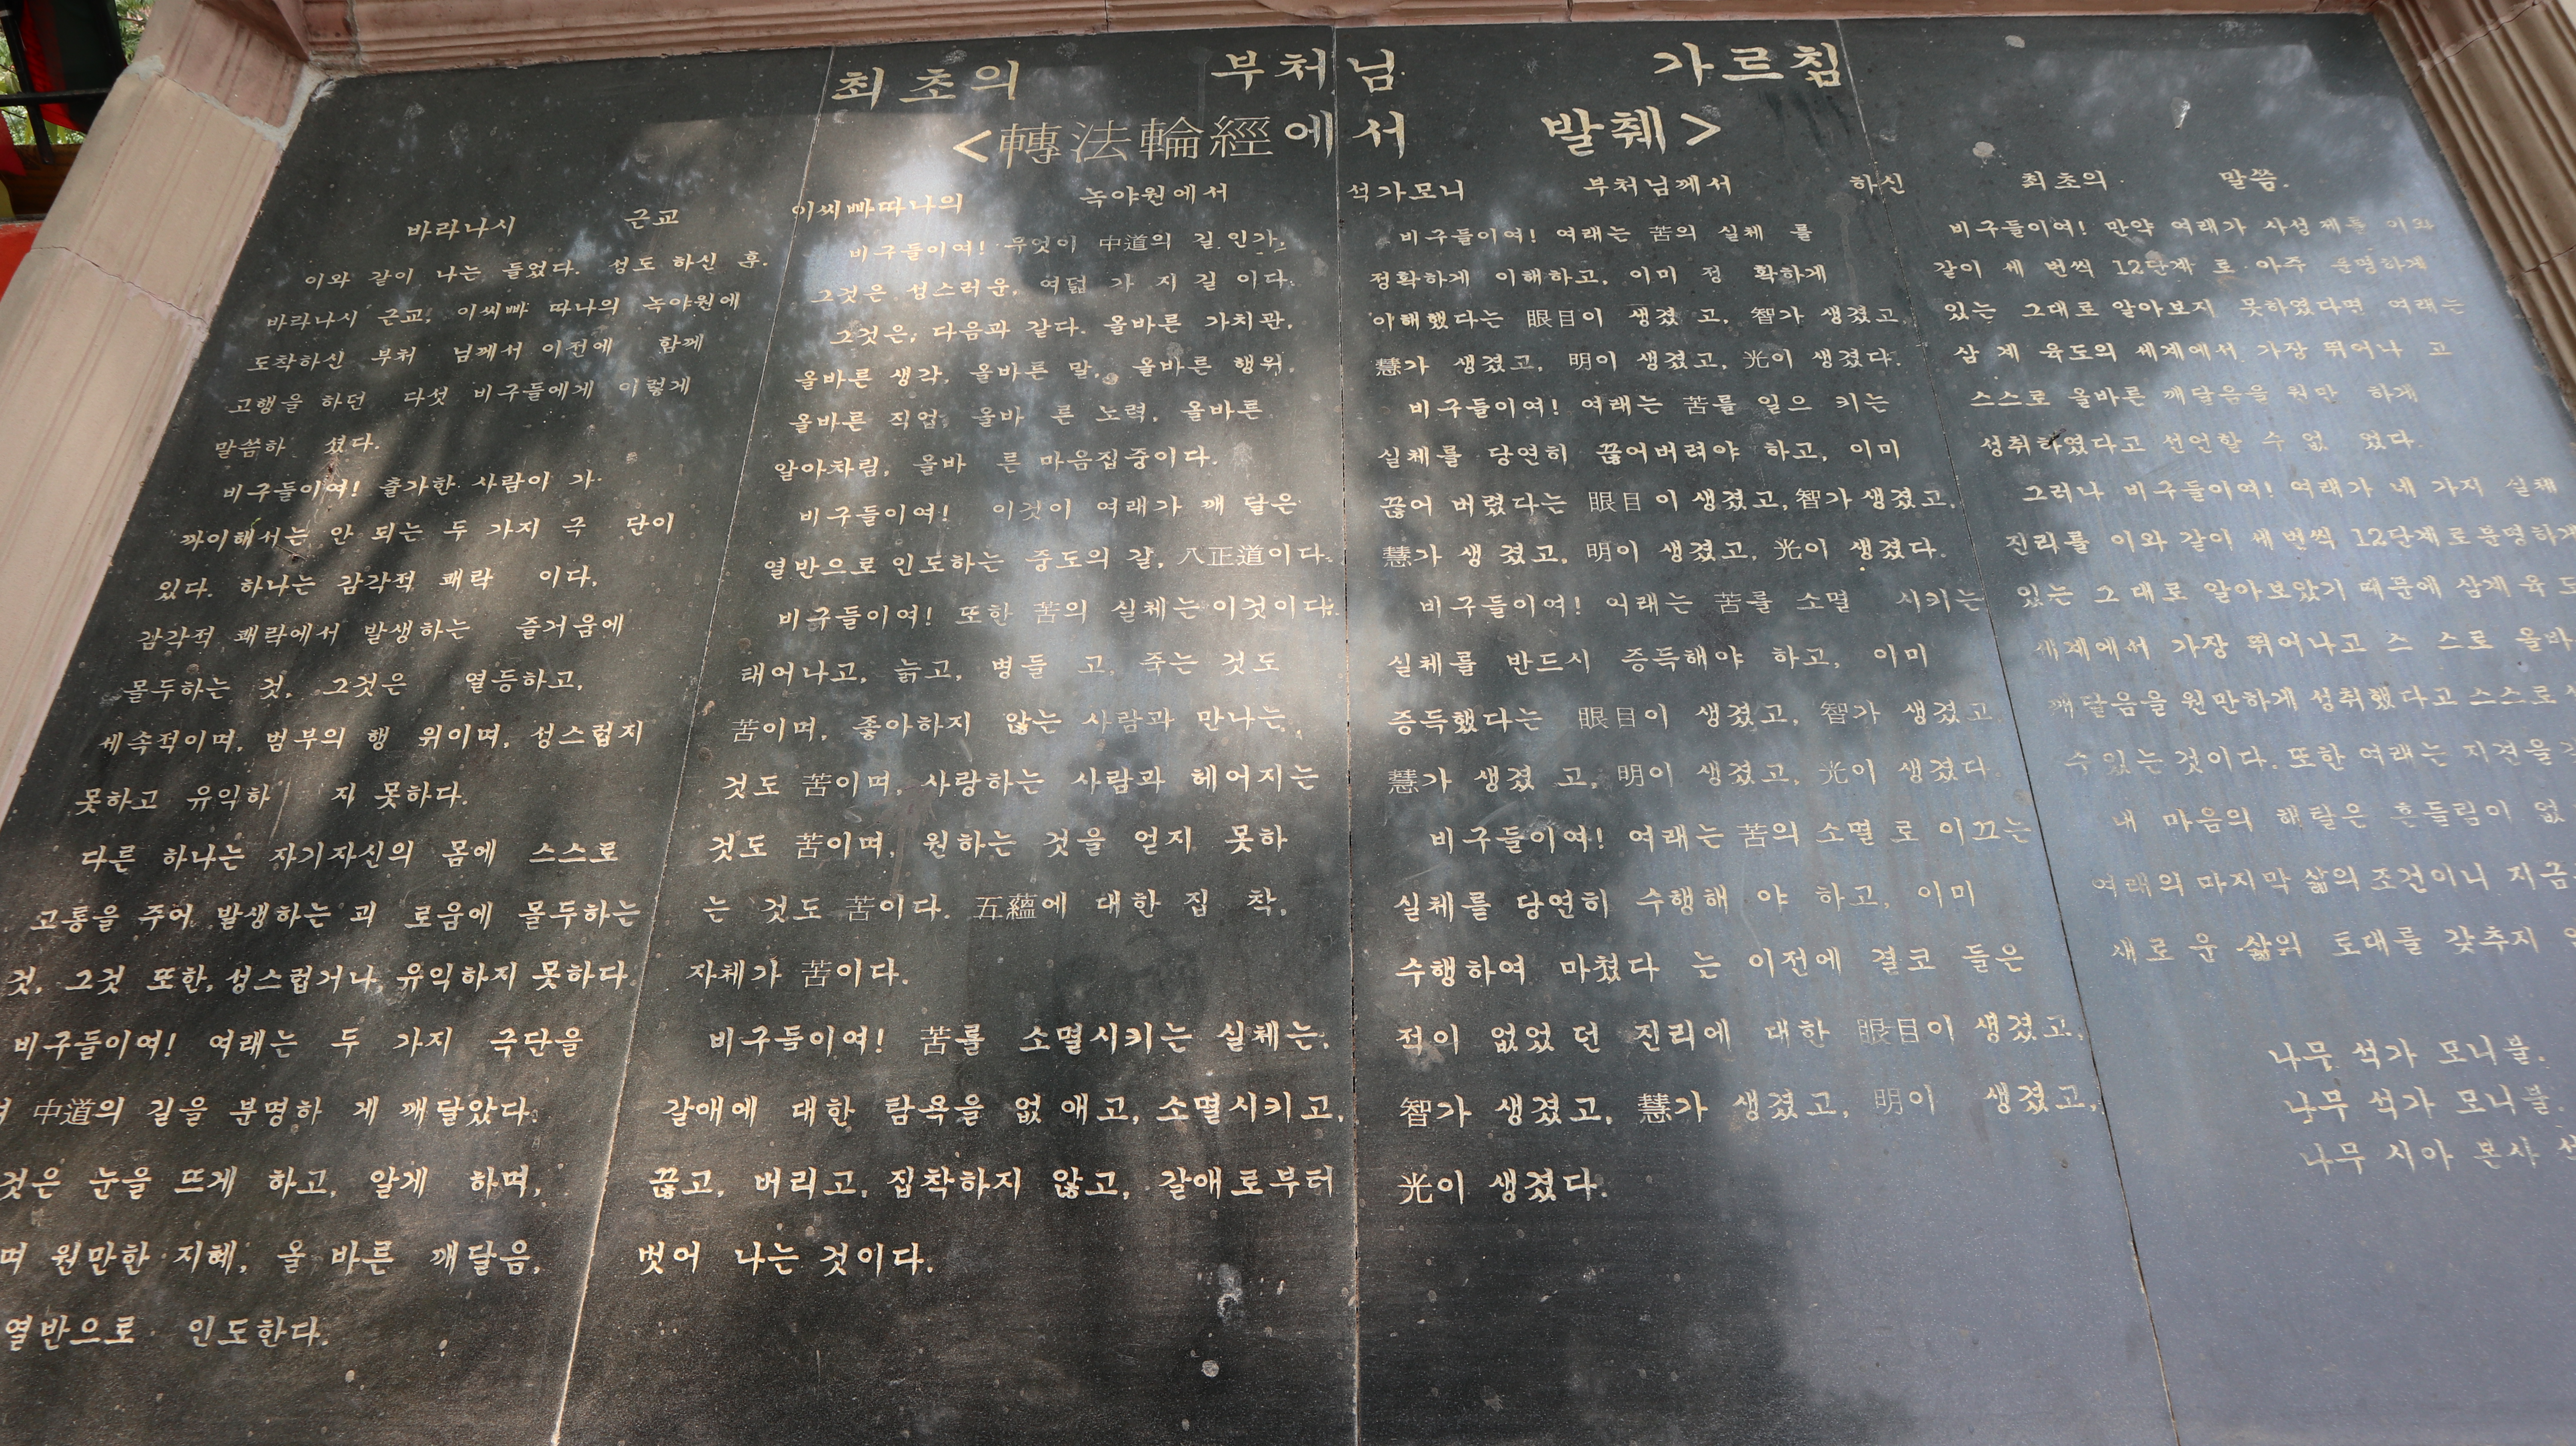 최초의 부처님 가르침
<轉法輪經에서 발췌>
바라나시 근교 이씨빠따나의 녹야원에서 석가모니 부처님께서 하신 최초의 말씀.
이와 같이 나는 들었다. 성도 하신 후.
바라나시 근교, 이씨빠 따나의 녹야원에
도착하신 부처 님께서 이전에 함께
고행을 하던 다섯 비구들에게 이렇게
말씀하 셨다.
비구들이여! 출가한 사람이 가
까이해서는 안 되는 두 가지 극 단이
있다. 하나는 감각적 쾌락 이다,
감각적 쾌락에서 발생하는 즐거움에
몰두하는 것, 그것은 열등하고,
세속적이며, 범부의 행 위이며, 성스럽지
못하고 유익하 지 못하다.
다른 하나는 자기자신의 몸에 스스로
고통을 주어 발생하는 괴 로움에 몰두하는
것, 그것 또한, 성스럽거나, 유익하지 못하다.
비구들이여! 여래는 두 가지 극단을
中道의 길을 분명하 게 깨달았다.
것은 눈을 뜨게 하고, 알게 하며,
며 원만한 지혜, 올 바른 깨달음,
열반으로 인도한다.
비구들이여! 무엇이 中道의 길 인가,
그것은 성스러운, 여덟 가 지 길 이다.
그것은, 다음과 같다. 올바른 가치관,
올바른 생각, 올바른 말, 올바른 행위,
올바른 직업, 올바 른 노력, 올바른
알아차림, 올바 른 마음집중이다.
비구들이여! 이것이 여래가 깨 달은
열반으로 인도하는 중도의 길, 八正道이다.
비구들이여! 또한 苦의 실체는 이것이다.
태어나고, 늙고, 병들 고, 죽는 것도
苦이며, 좋아하지 않는 사람과 만나는
것도 苦이며, 사랑하는 사람과 헤어지는
것도 苦이며, 원하는 것을 얻지 못하
는 것도 苦이다. 五蘊에 대한 집 착,
자체가 苦이다.
비구들이여! 苦를 소멸시키는 실체는,
갈애에 대한 탐욕을 없 애고, 소멸시키고,
끊고, 버리고, 집착하지 않고, 갈애로부터
벗어 나는 것이다.
비구들이여! 여래는 苦의 실체 를
정확하게 이해하고, 이미 정 확하게
이해했다는 眼目이 생겼 고, 智가 생겼고,
慧가 생겼고, 明이 생겼고, 光이 생겼다.
비구들이여! 여래는 苦를 일으 키는
실체를 당연히 끊어버려야 하고, 이미
끊어 버렸다는 眼目이 생겼고, 智가 생겼고,
慧가 생 겼고, 明이 생겼고, 光이 생겼다.
비구들이여! 여래는 苦를 소멸 시키는
실체를 반드시 증득해야 하고, 이미
증득했다는 眼目이 생겼고, 智가 생겼고,
慧가 생겼 고, 明이 생겼고, 光이 생겼다.
비구들이여! 여래는 苦의 소멸 로 이끄는
실체를 당연히 수행해 야 하고, 이미
수행하여 마쳤다 는 이전에 결코 들은
적이 없었 던 진리에 대한 眼目이 생겼고,
智가 생겼고, 慧가 생겼고, 明이 생겼고,
光이 생겼다.
비구들이여! 만약 여래가 사성제를 이와
같이 세 번씩 12단계 로 아주 분명하게
있는 그대로 알아보지 못하였다면 여래는
삼 계 육도의 세계에서 가장 뛰어나 고
스스로 올바른 깨달음을 원만 하게
성취하였다고 선언할 수 없 었다.
그러나 비구들이여! 여래가 네 가지 실체
진리를 이와 같이 세번씩 12단계로분명하게
있는 그 대로 알아보았기 때문에 삼계 육 도
세계에서 가장 뛰어나고 스 스로 올바
깨달음을 원만하게 성취했다고 스스로
수 있는 것이다. 또한 여래는 지견을
내 마음의 해탈은 흔들림이 없
여래의 마지막 삶의 조건이니 지금
새로 운 삶의 토대를 갖추지
나무 석가 모니불.
나무 석가 모니불.
나무 시아 본사